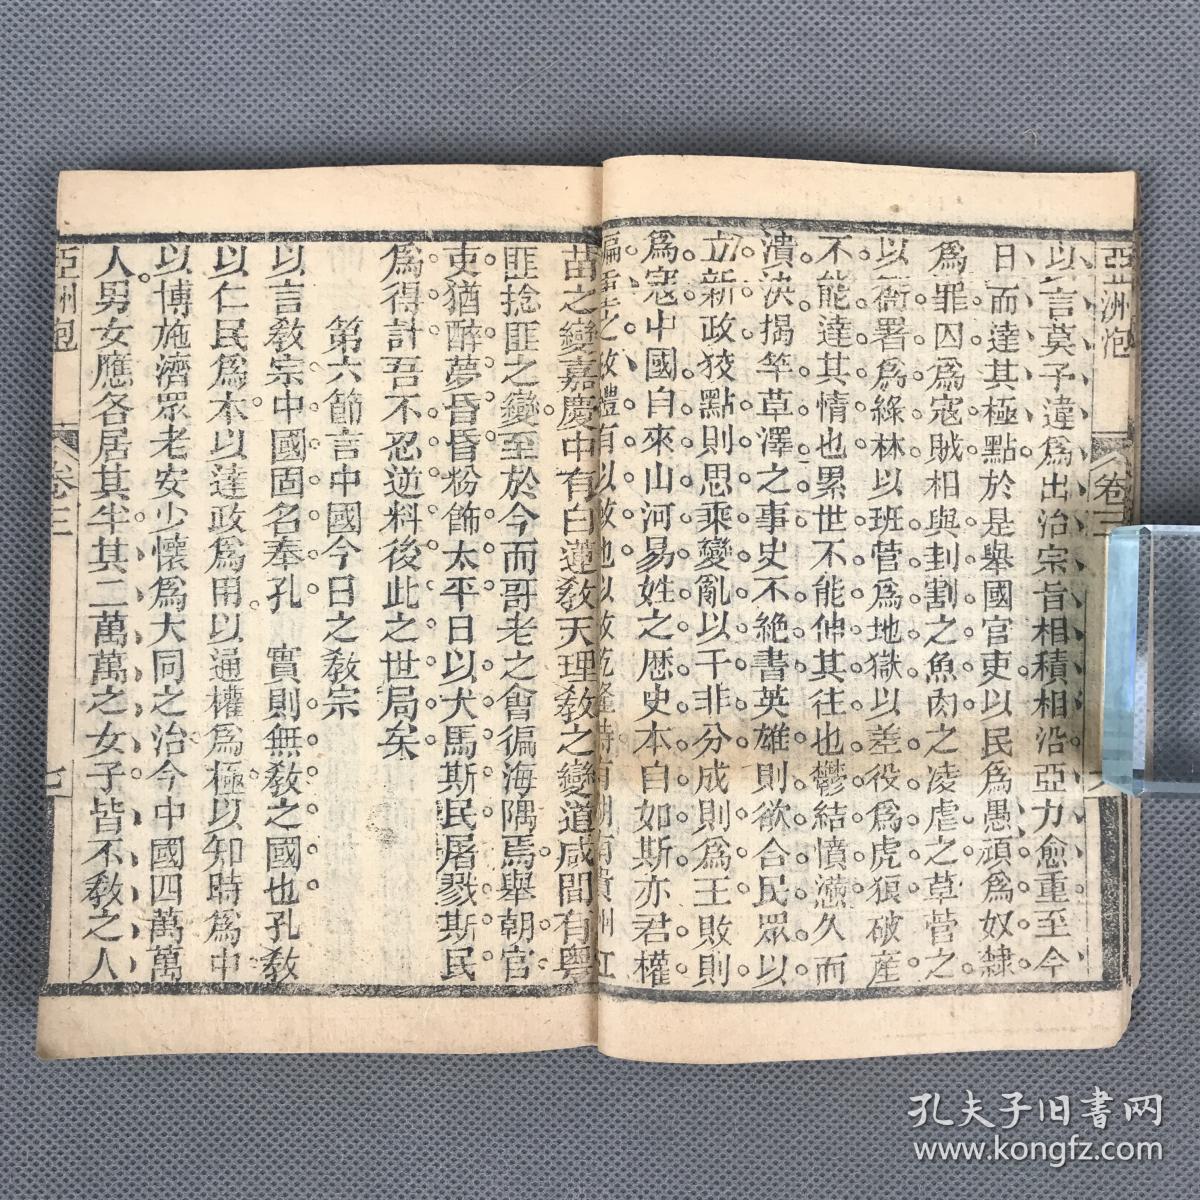 亞洲泡
卷三
以言莫予違爲出治宗旨相積相沿亞力愈重至今
日而達其極點於是舉國官吏以民爲愚頑爲奴隸
爲罪囚爲寇賊相與刲割之魚肉之凌虐之草菅之
以衙署爲綠林以班管爲地獄以差役爲虎狼破產
不能達其情也累世不能伸其往也鬱結憤懣久而
潰決揭竿草澤之事史不絕書英雄則欲合民眾以
立新政狡黠則思乘變亂以干非分成則爲王敗則
爲寇中國自來山河易姓之歷史本自如斯亦君權
偏重之故禮有以致也以故乾隆時有湖南貴州江
苗之變嘉慶中有白蓮教天理教之變道咸間有粵
匪捻匪之變至於今而哥老之會徧海隅焉舉朝官
吏猶醉夢昏昏粉飾太平日以犬馬斯民屠戮斯民
爲得計吾不忍逆料後此之世局矣
第六節言中國今日之教宗
以言教宗中國固名奉孔 實則無教之國也孔教
以仁民爲本以達政爲用以通權爲極以知時爲中
以博施濟眾老安少懷爲大同之治今中國四萬萬
人男女應各居其半其二萬萬之女子皆不教之人
亞洲泡
卷三
七
孔夫子旧書网
www.kongfz.com